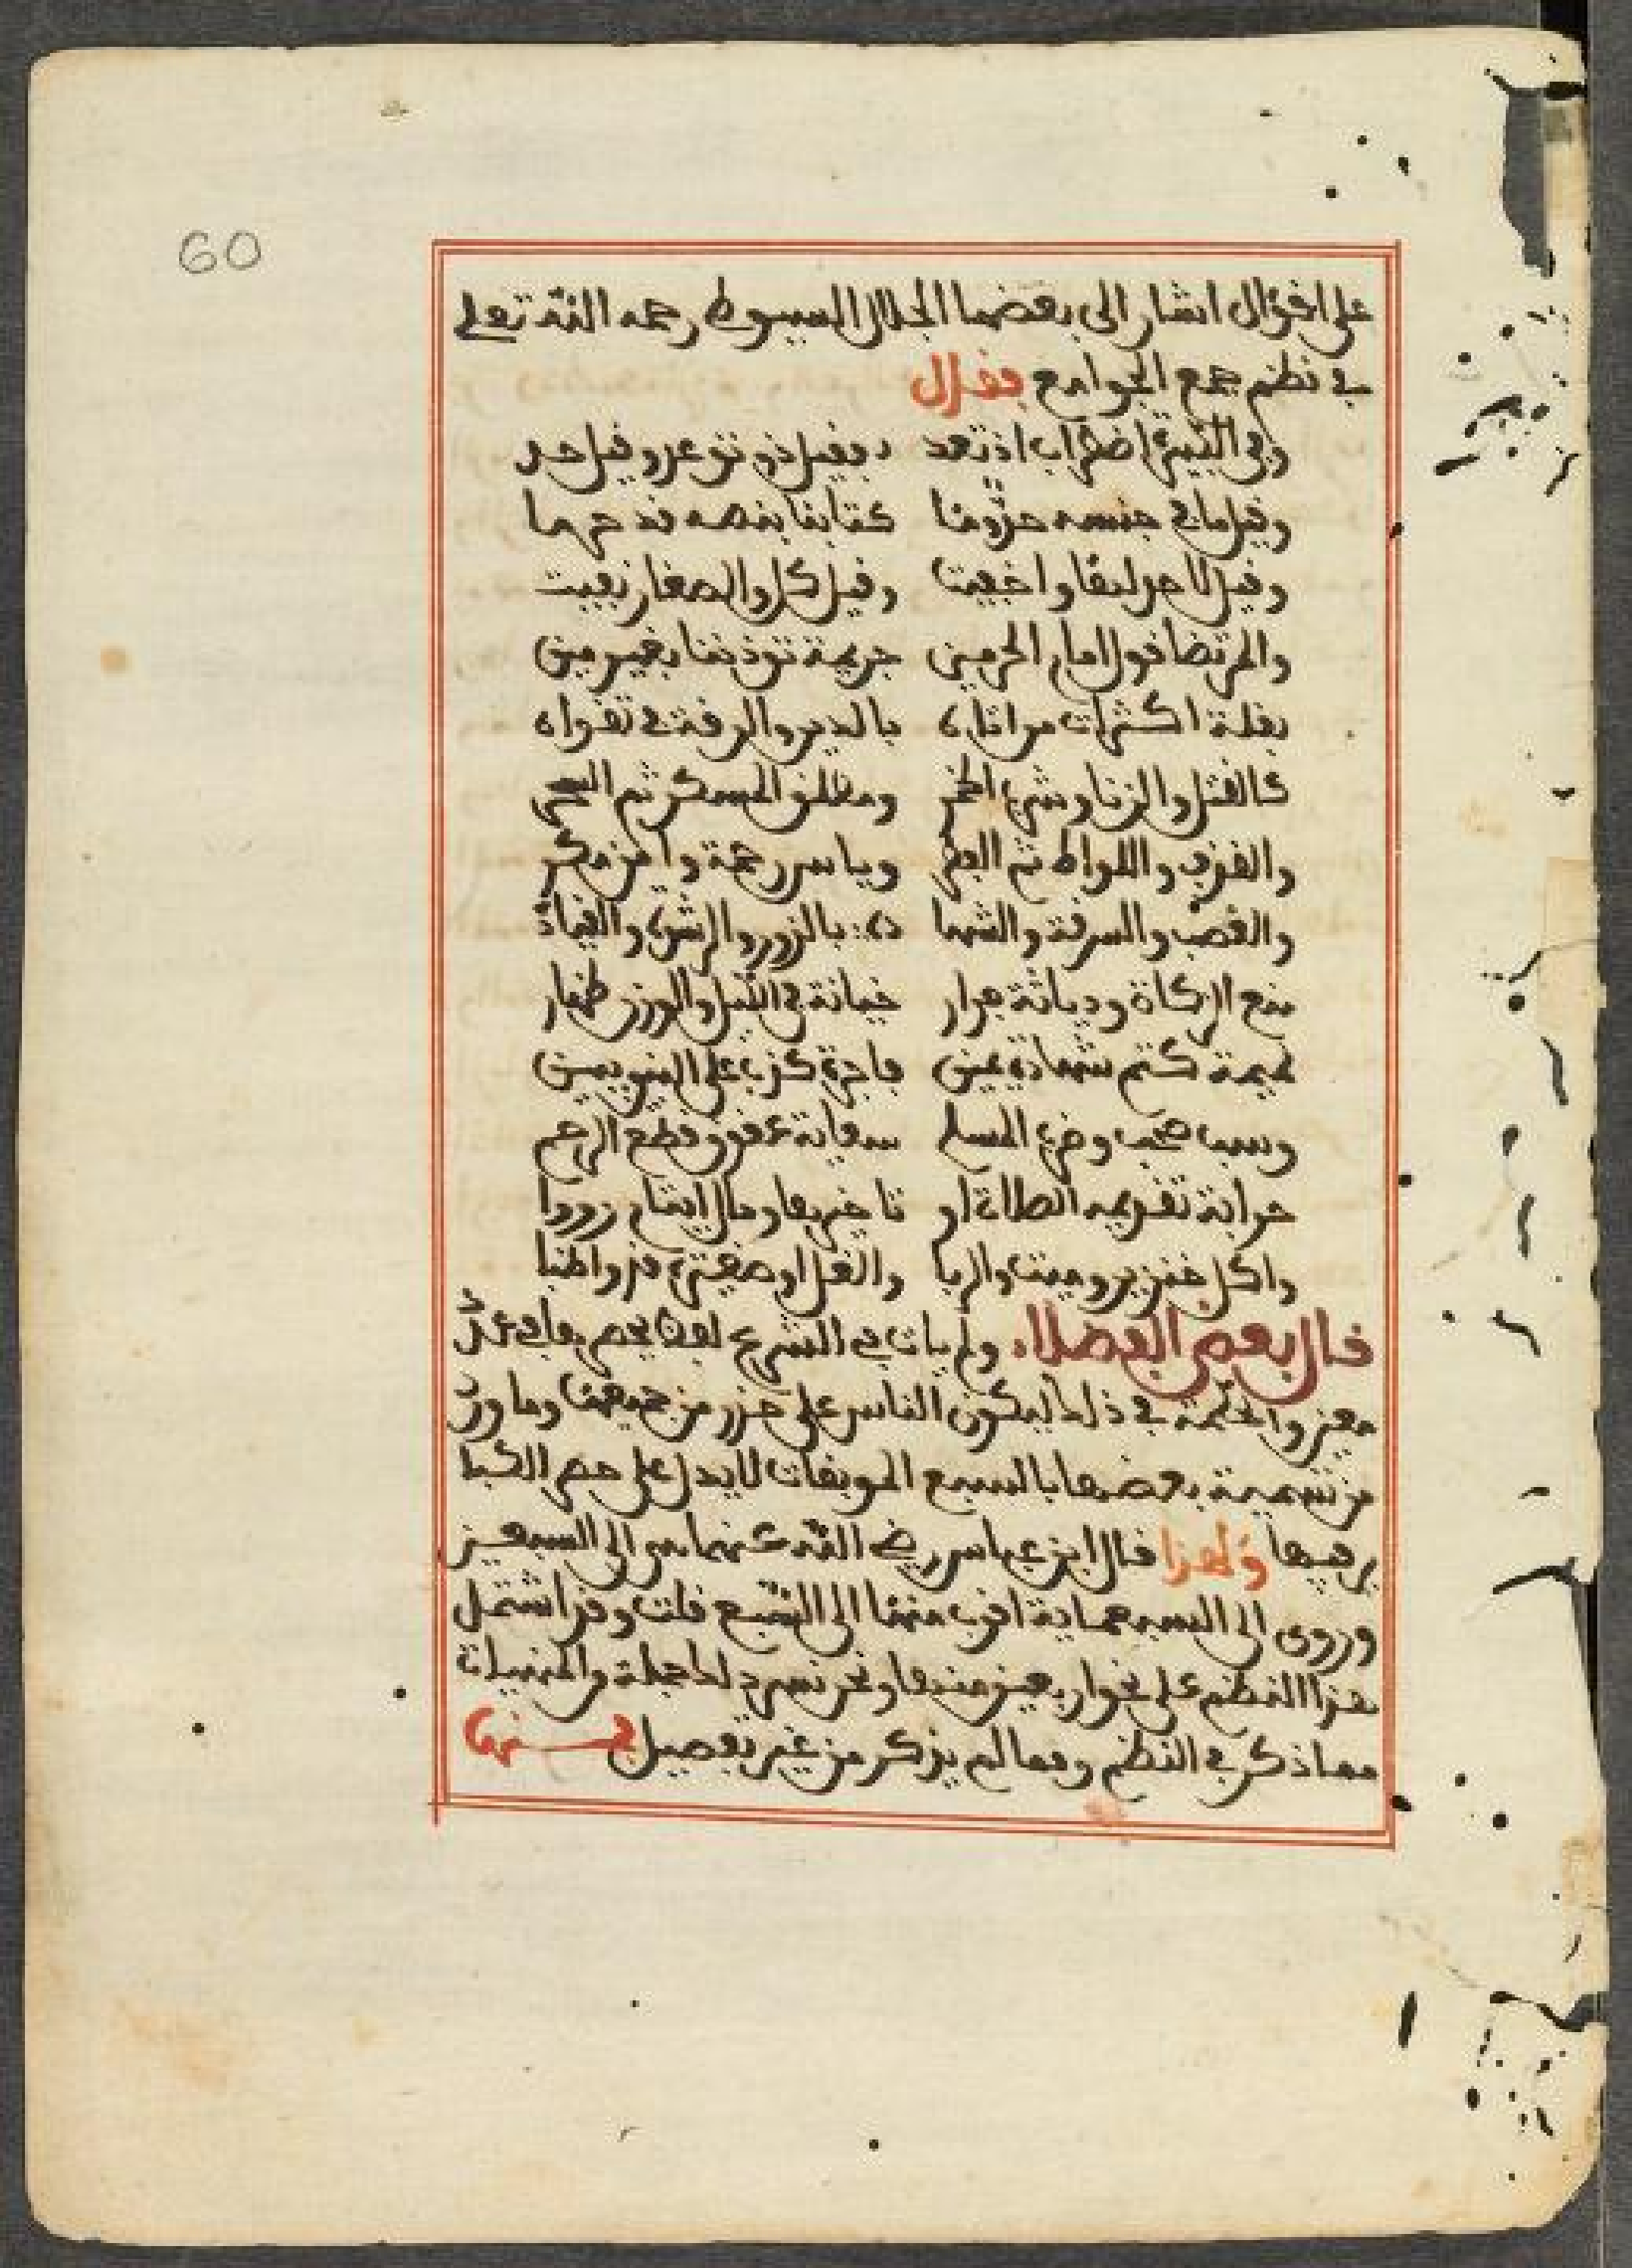 60
على اقوال اشار الى بعضها الجلال السيوطي رحمه الله تعلى
في نظم جمع الجوامع فقال
وفي الكبيرة اضطراب اذ تحد فقيل ذو توعد وقيل حد
وقيل ما في جنسه حد وما كتابنا بنصه قد حرما
وقيل لا حد لها واخفيت وقيل كل والصغار نفيت
والمرتضا قول امام الحرمين جريمة توذننا بغير مين
بقلة اكتراث من اتاه بالدين والرقة في تقواه
كالقتل والزنا وشرب الخمر ومطلق المسكر ثم السحر
والقذف واللواط ثم الفطر وياس رحمة وامن مكر
والغصب والسرقة والشها دة بالزور والرشوة والقيادة
منع الزكاة ودياثة فرار خيانة في الكيل والوزن ظهار
نميمة كتم شهادة يمين فاجرة كذب على النبي يمين
وسب صحب وضرب المسلم سعاية عقوق قطع الرحم
حرابة تقديمه الصلاة او تاخيرها ومال ايتام رووا
واكل خنزير وميت والربا والغل او صغيرة قد واظبا
قال بعض الفضلاء ولم يات في الشرع لها حصر بها في عدد
معين والحكمة في ذلك ليكون الناس على حذر من جميعها وما ورد
من تسمية بعضها بالسبع الموبقات لا يدل على حصر الكبا
ير فيها ولهذا قال ابن عباس رضي الله عنهما هي الى السبعين
وروى الى السبعماية اقرب منها الى السبع قلت وقد اشتمل
هذا النظم على نحو اربعين منها ونحن نسرد لك جملة من المنهيات
مما ذكر في النظم ومما لم يذكر من غير تفصيل